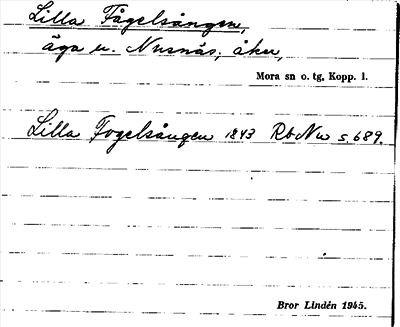 Lilla Fågelsången,
äga u. Nusnäs, åker,
Mora sn o. tg, Kopp. l.
Lilla Fogelsången 1843 RbNu s. 689.
Bror Lindén 1945.